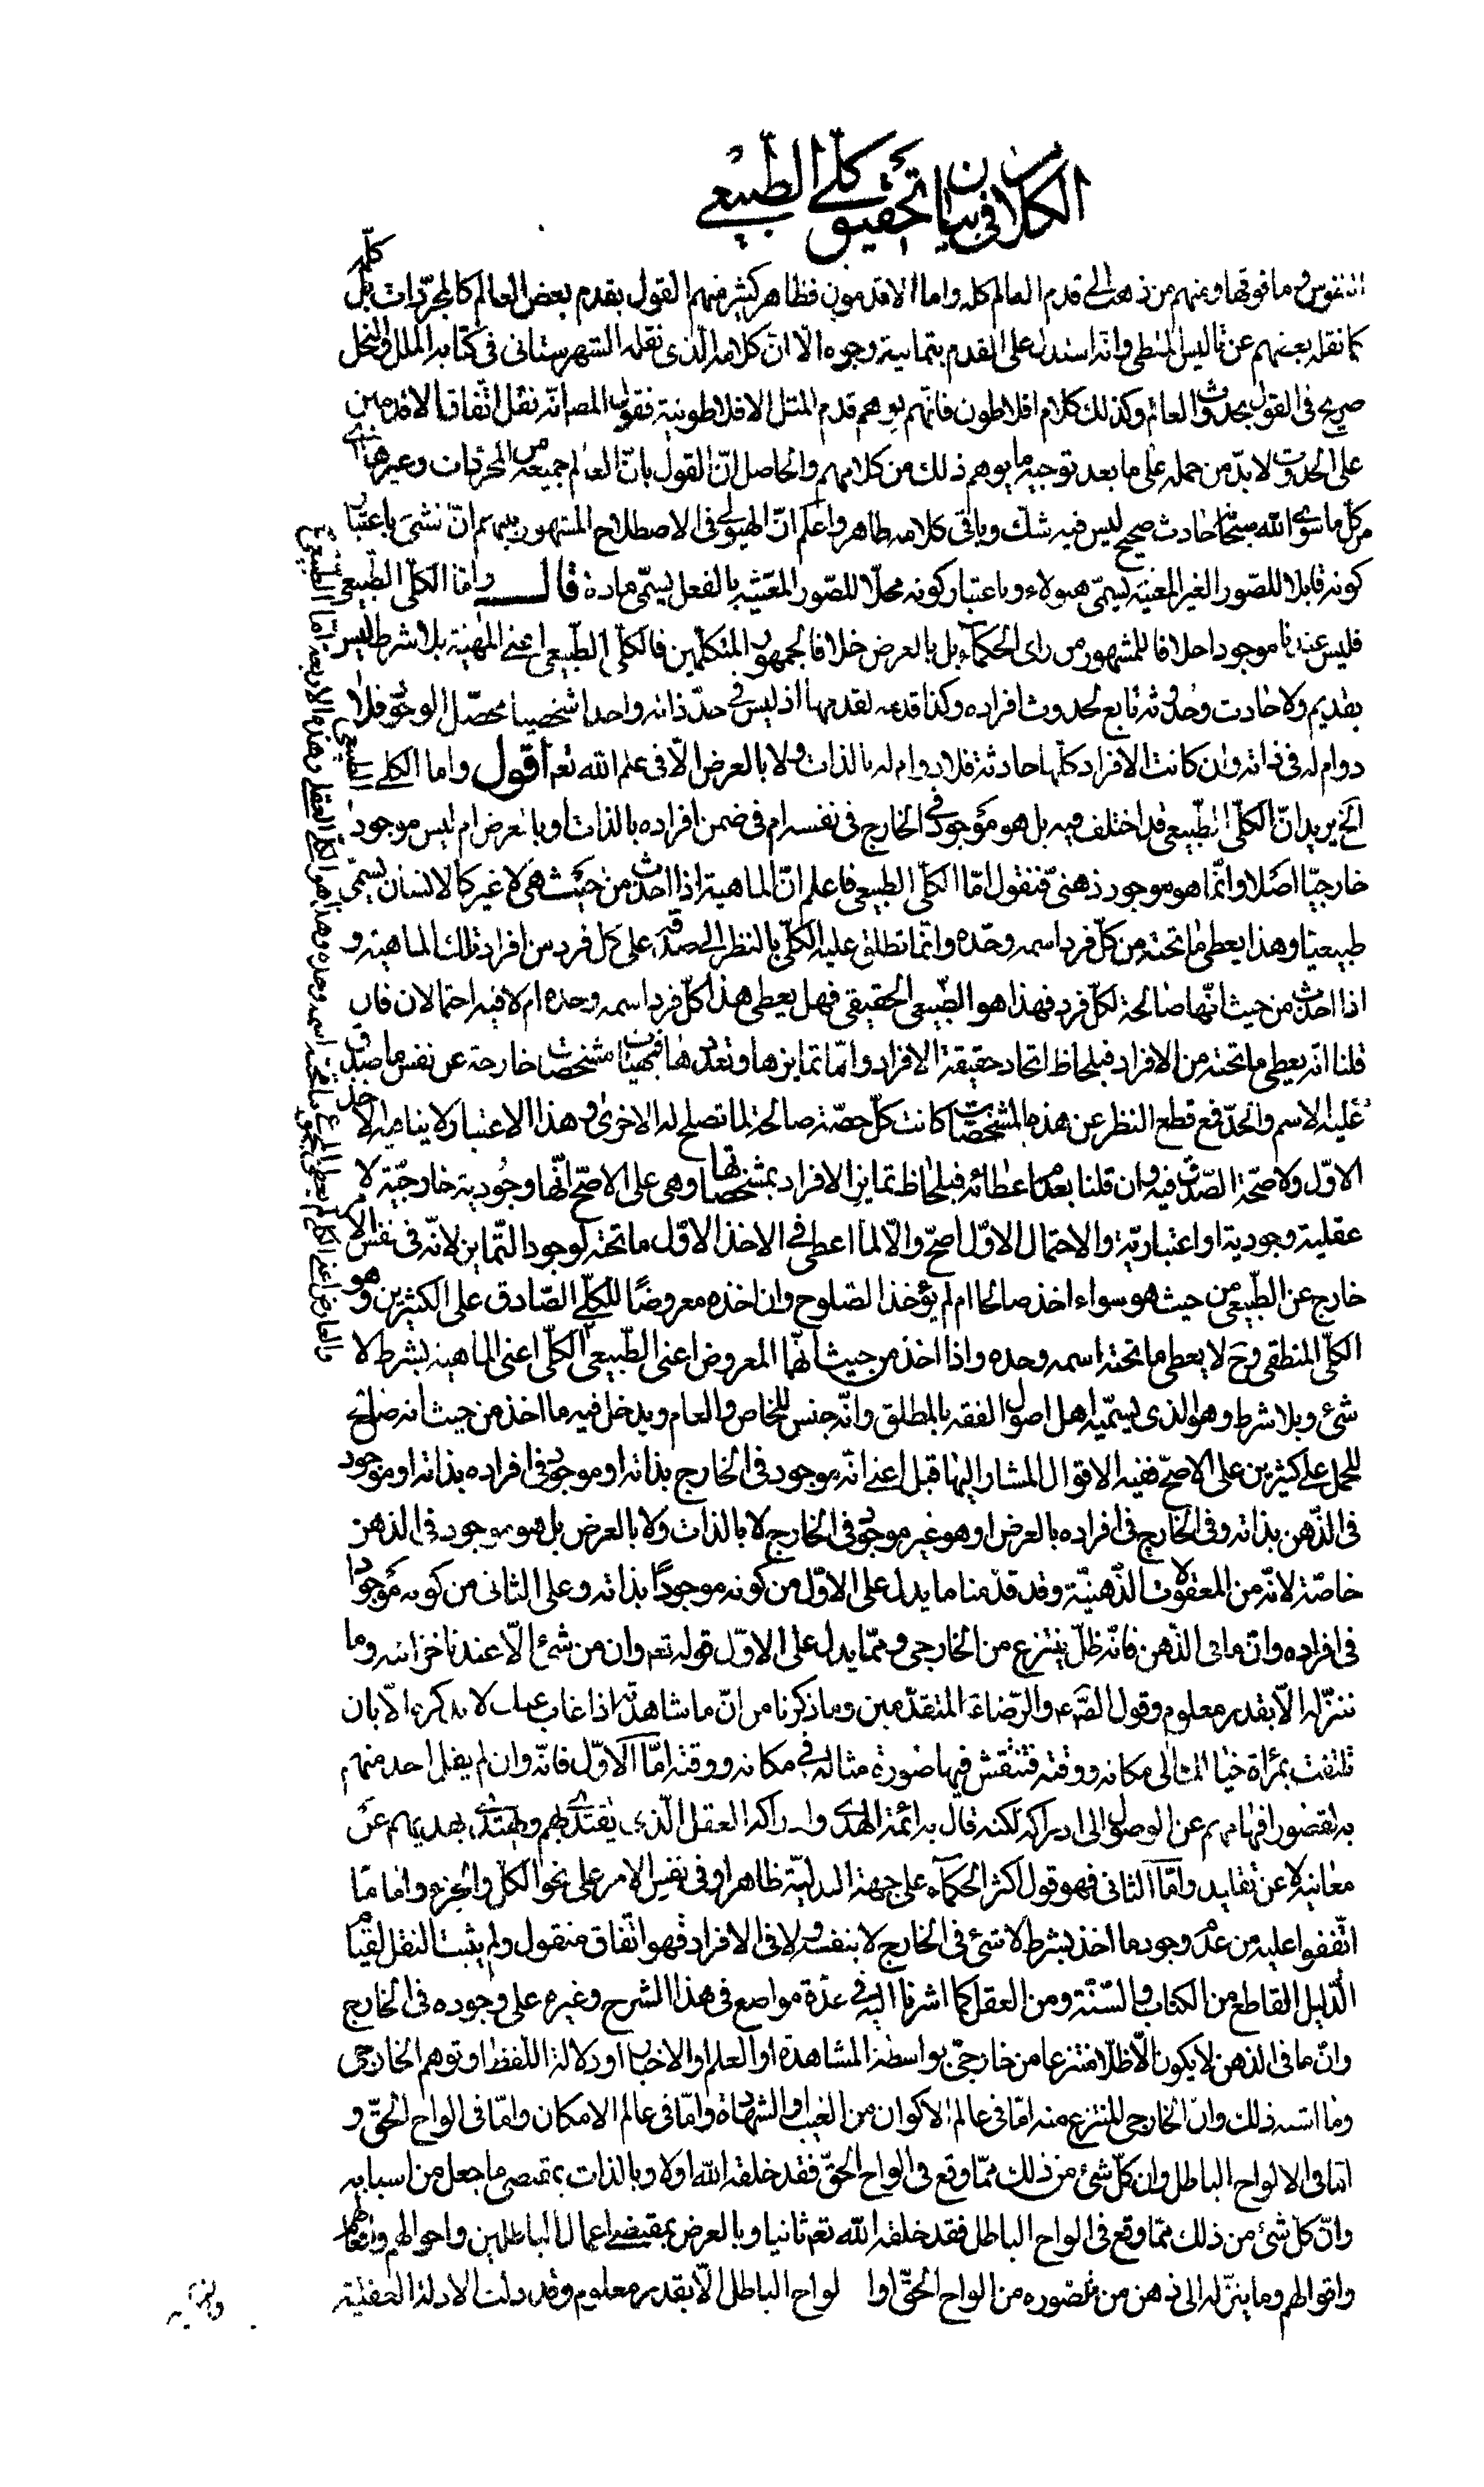 الكلام فى بيان تحقيق كلى الطبيعى
النفوس و ما فوقها ومنهم من ذهب الى قدم العالم كله واما الاقدمون فظاهر كثير منهم القول بقدم بعض العالم كالمجرّدات بل كلّه
كما نقله بعضهم عن ثاليس الملطى وانه استدل على القدم بثمانية وجوه الّا انّ كلامه الّذى نقله الشهرستانى فى كتابه الملل والنحل
صريح فى القول بحدوث العالم وكذلك كلام افلاطون فانهم يوهم قدم المثل الافلاطونية فقول المص انّه نقل اتّفاق الاقدمين
على الحدوث لا بدّ من حمله على ما بعد توجيه ما يوهم ذلك من كلامهم والحاصل انّ القول بانّ العالم جميعه من المجردات وغيرها
من كلّ ما سوى الله سبحانه حادث صحيح ليس فيه شك وباقى كلامه ظاهر واعلم انّ الهيولى فى الاصطلاح المشهور بينهم انّ الشىء باعتبار
كونه قابلا للصّور الغير المعيّنة يسمّى هيولاء وباعتبار كونه محلّا للصّور المعيّنة بالفعل يسمّى مادة قال واما الكلّى الطّبيعى
فليس عندنا موجودا خلافا للمشهور من راى الحكماء بل بالعرض خلافا لجمهور المتكلّمين فالكلّى الطّبيعى اعنى المهيّة بلا شرط ليس
بقديم ولا حادث وحدوثه تابع لحدوث افراده وكذا قدمه لقدمها اذ ليس فى حدّ ذاته واحدا شخصيا محصّل الوجود فلا
دوام له فى ذاته وان كانت الافراد كلّها حادثة فلا دوام له بالذات ولا بالعرض الّا فى علم الله تعم اقول واما الكلى الطبيعى
الخ يريد انّ الكلّى الطّبيعى قد اختلف فيه بل هو موجود فى الخارج فى نفسه ام فى ضمن افراده بالذات او بالعرض ام ليس موجود
خارجيّا اصلا وانّما هو موجود ذهنىّ فنقول امّا الكلّى الطبيعى فاعلم انّ الماهية اذا اخذت من حيث هى لا غير كالانسان يسمّى
طبيعيّا وهذا يعطى ما تحته من كلّ فرد اسمه وحدّه وانّما تطلق عليه الكلّى بالنظر الى صدقه على كل فرد من افراد تلك الماهية و
اذا اخذت من حيث انّها صالحة لكلّ فرد فهذا هو الطّبيعى الحقيقى فهل يعطى هذا كلّ فرد اسمه وحدّه ام لا فيه احتمالان فان
قلنا انّه يعطى ما تحته من الافراد فبلحاظ اتحاد حقيقة الافراد وامّا تمايزها وتعدّدها فبهيئات مشخّصات خارجة عن نفس ما صدق
عليه الاسم والحدّ فمع قطع النظر عن هذه المشخّصات كانت كلّ حصّة صالحة لما تصلح له الاخرى وهذا الاعتبار لا ينافيه الاخذ
الاوّل ولا صحّة الصّدق فيه وان قلنا بعدم اعطائه فبلحاظ تمايز الافراد بمشخّصاتها وهى على الاصحّ انّها وجودية خارجيّة لا
عقلية وجودية او اعتباريّة والاحتمال الاوّل اصحّ والّا لما اعطى فى الاخذ الاوّل ما تحته لوجود التّمايز لانّه فى نفس الامر
خارج عن الطّبيعى من حيث هو سواء اخذ صالحا ام لم يؤخذ الصلوح وان اخذه معروضًا للكلّى الصّادق على الكثيرين وهو
الكلّى المنطقى وح لا يعطى ما تحته اسمه وحده واذا اخذ من حيث انّها المعروض اعنى الطّبيعى الكلّى اعنى الماهية بشرط لا
شىء وبلا شرط وهو الذى يسمّيه اهل اصول الفقه بالمطلق وانّه جنس للخاص والعام ويدخل فيه ما اخذ من حيث انه صالح
للحمل على كثيرين على الاصحّ ففيه الاقوال المشار اليها قبل اعنى انّه موجود فى الخارج بذاته او موجود فى افراده بذاته او موجود
فى الذّهن بذاته وفى الخارج فى افراده بالعرض او هو غير موجود فى الخارج لا بالذات ولا بالعرض بل هو موجود فى الذهن
خاصّة لانّه من المعقولات الذّهنيّة وقد قدّمنا ما يدل على الاوّل من كونه موجودًا بذاته وعلى الثانى من كونه موجودا
فى افراده وانّ ما فى الذّهن فانّه ظلّ ينتزع من الخارجى وممّا يدل على الاوّل قوله تعم وان من شىء الّا عندنا خزائنه وما
ننزّله الّا بقدر معلوم وقول الصّم والرّضاء المتقدّمين وما ذكرنا من انّ ما شاهدته اذا غاب عنك لا تذكره الّا بان
تلتفت بمرآة خيالك الى مكانه ووقته فتنتقش فيها صورة مثاله فى مكانه ووقته امّا الاوّل فانّه وان لم يقل احد منهم
به لقصور افهامهم عن الوصول الى ادراكه لكنه قال به ائمة الهدى وادراكه العقل الّذى يقتدى بهم ويهتدى بهديهم عن
معانيه لا عن تقليد وامّا الثانى فهو قول اكثر الحكماء على جهة البدليّة ظاهرا وفى نفس الامر على نحو الكلّ والجزء واما ما
اتّفقوا عليه من عدم وجود ما اخذ بشرط لا شىء فى الخارج لا بنفسه ولا فى الافراد فهو اتّفاق منقول ولم يثبت النقل لقيام
الدّليل القاطع من الكتاب والسّنّة ومن العقل كما اشرنا اليه فى عدّة مواضع فى هذا الشرح وغيره على وجوده فى الخارج
وانّ ما فى الذهن لا يكون الّا ظلّا منتزعا من خارجىّ بواسطة المشاهدة او العلم او الاخبار او دلالة اللفظ او توهم الخارجى
وما اشبه ذلك وانّ الخارجى المنتزع منه امّا فى عالم الاكوان من الغيب والشهادة وامّا فى عالم الامكان وامّا فى الواح الحقّ و
امّا فى الالواح الباطل وان كلّ شىء من ذلك ممّا وقع فى الواح الحقّ فقد خلقه الله اولا وبالذات بمقتضى ما جعل من اسبابه
وانّ كلّ شىء من ذلك ممّا وقع فى الواح الباطل فقد خلقه الله تعم ثانيا وبالعرض بمقتضى اعمال الباطلين واحوالهم وافعالهم
واقوالهم وما ينزّله الى ذهن من تصّوره من الواح الحقّ او الواح الباطل الّا بقدر معلوم وقد دلت الادلة العقليّة